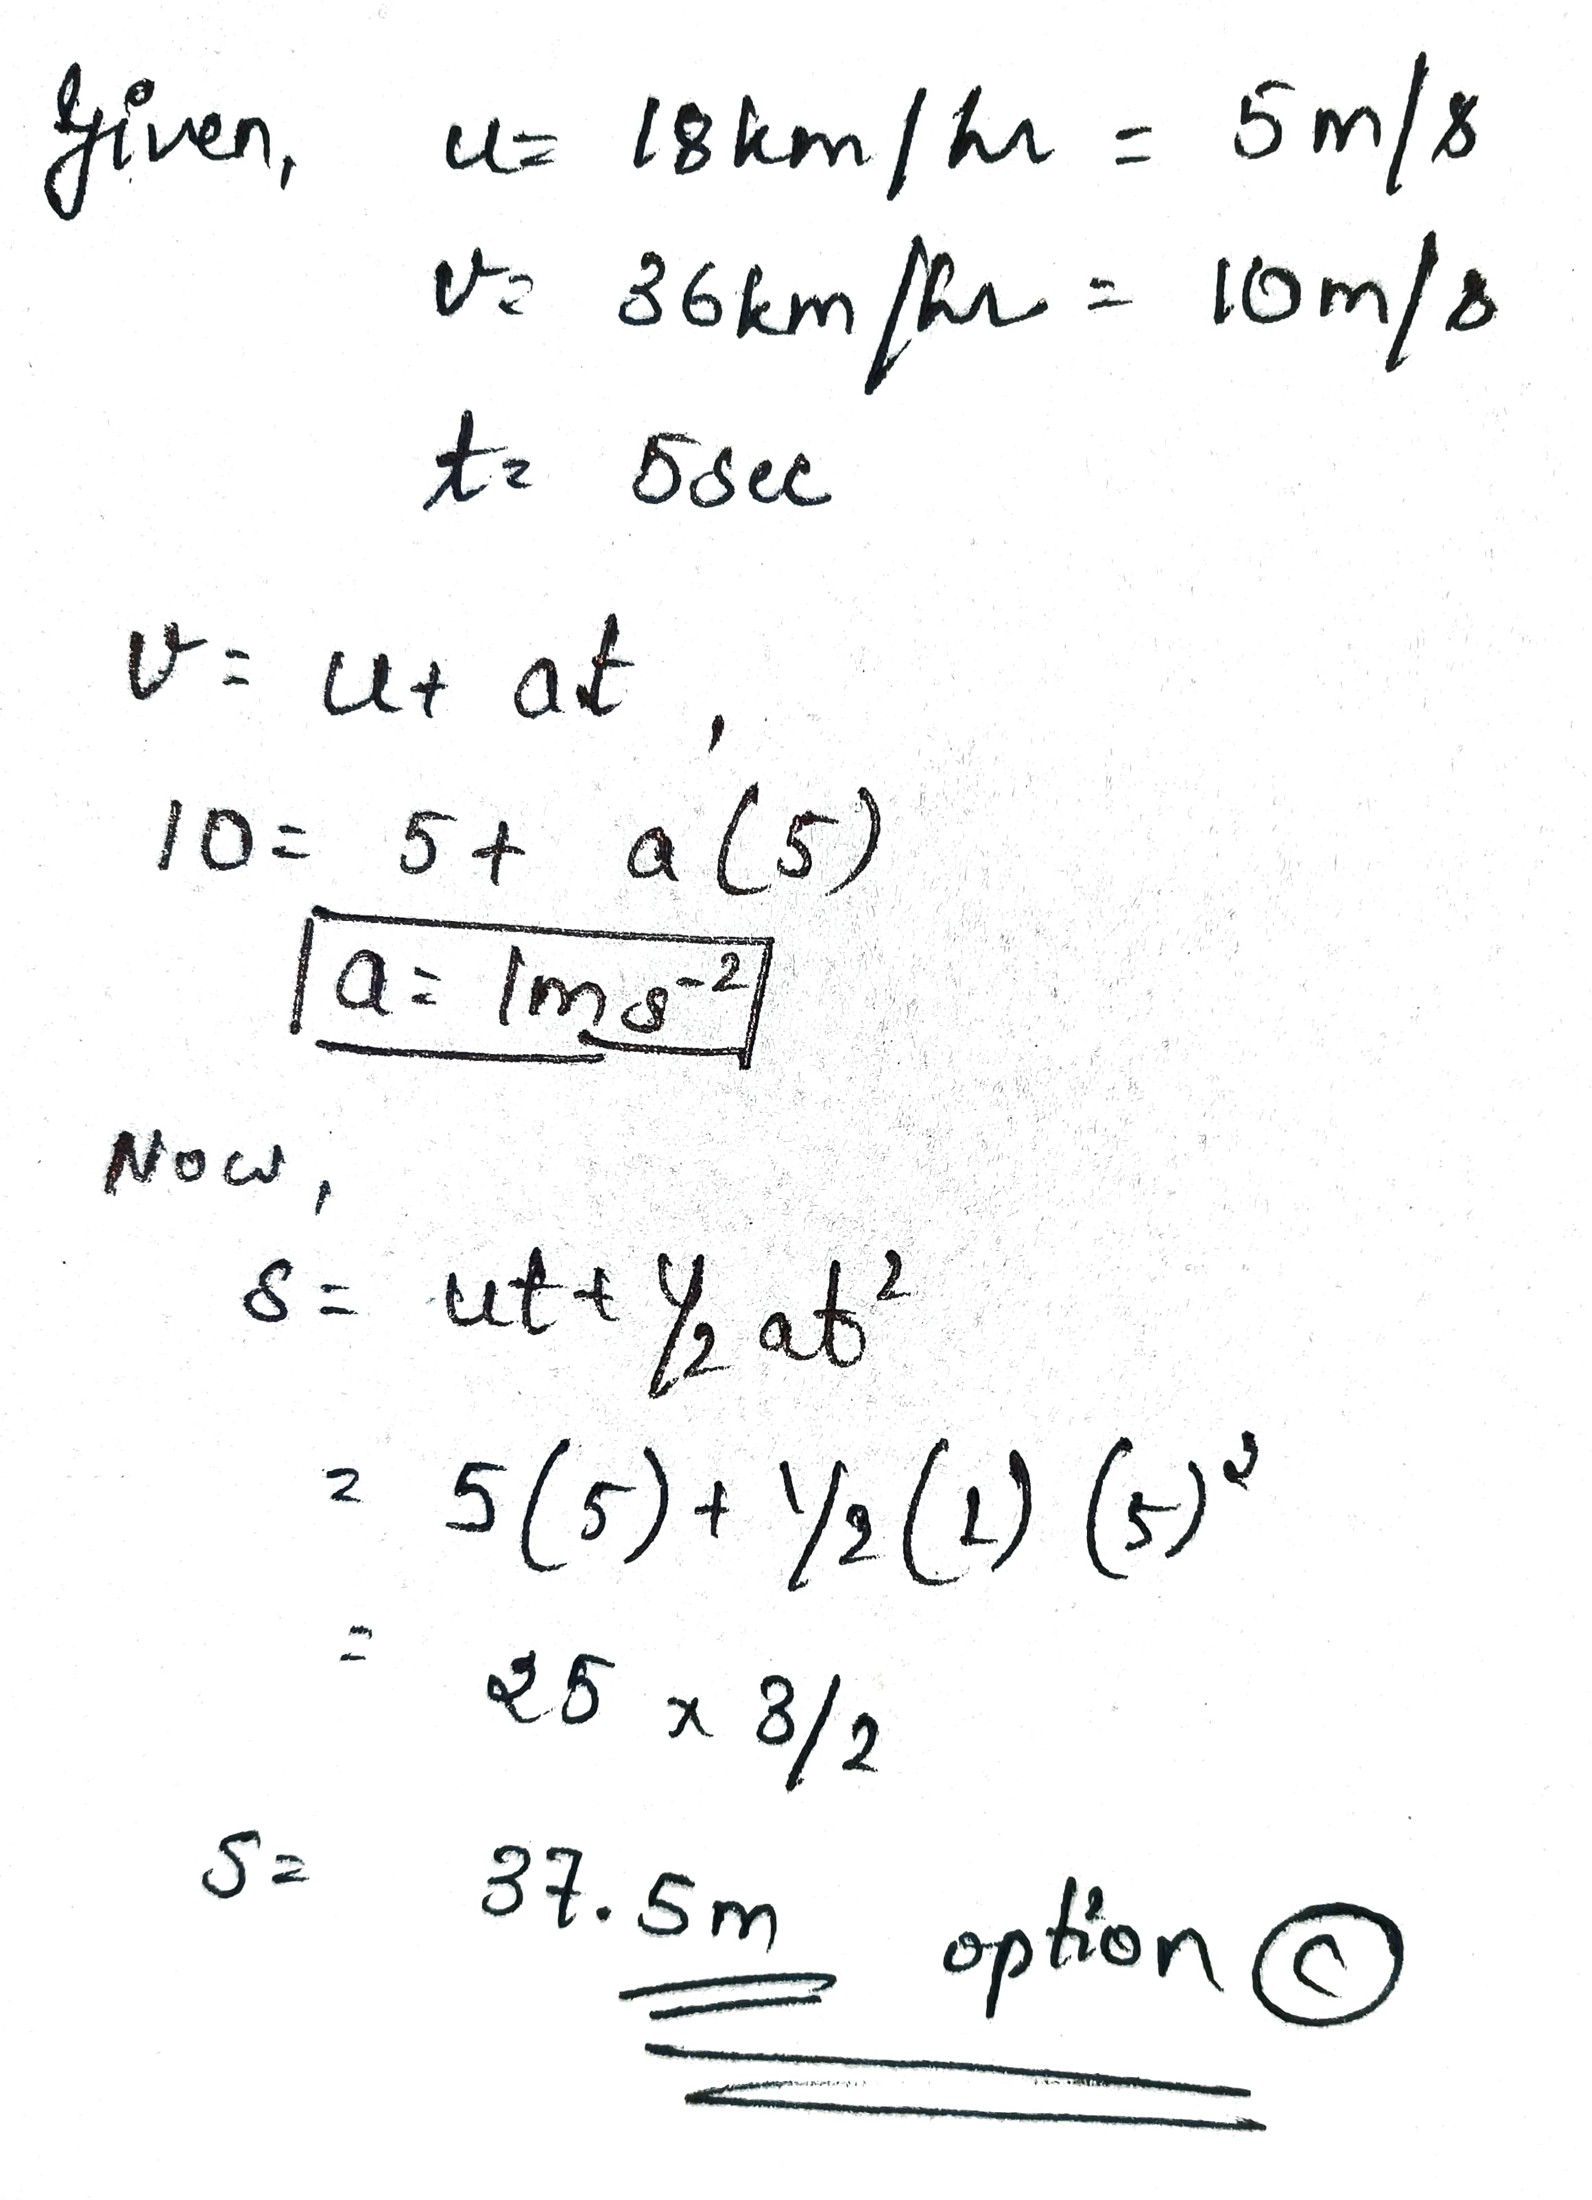 Given, u = 18km/hr = 5m/s
v = 36km/hr = 10m/s
t = 5sec
v = u + at,
10 = 5 + a(5)
a = 1ms⁻²
Now,
s = ut + 1/2 at²
= 5(5) + 1/2(1)(5)²
= 25 x 3/2
S = 37.5m option C